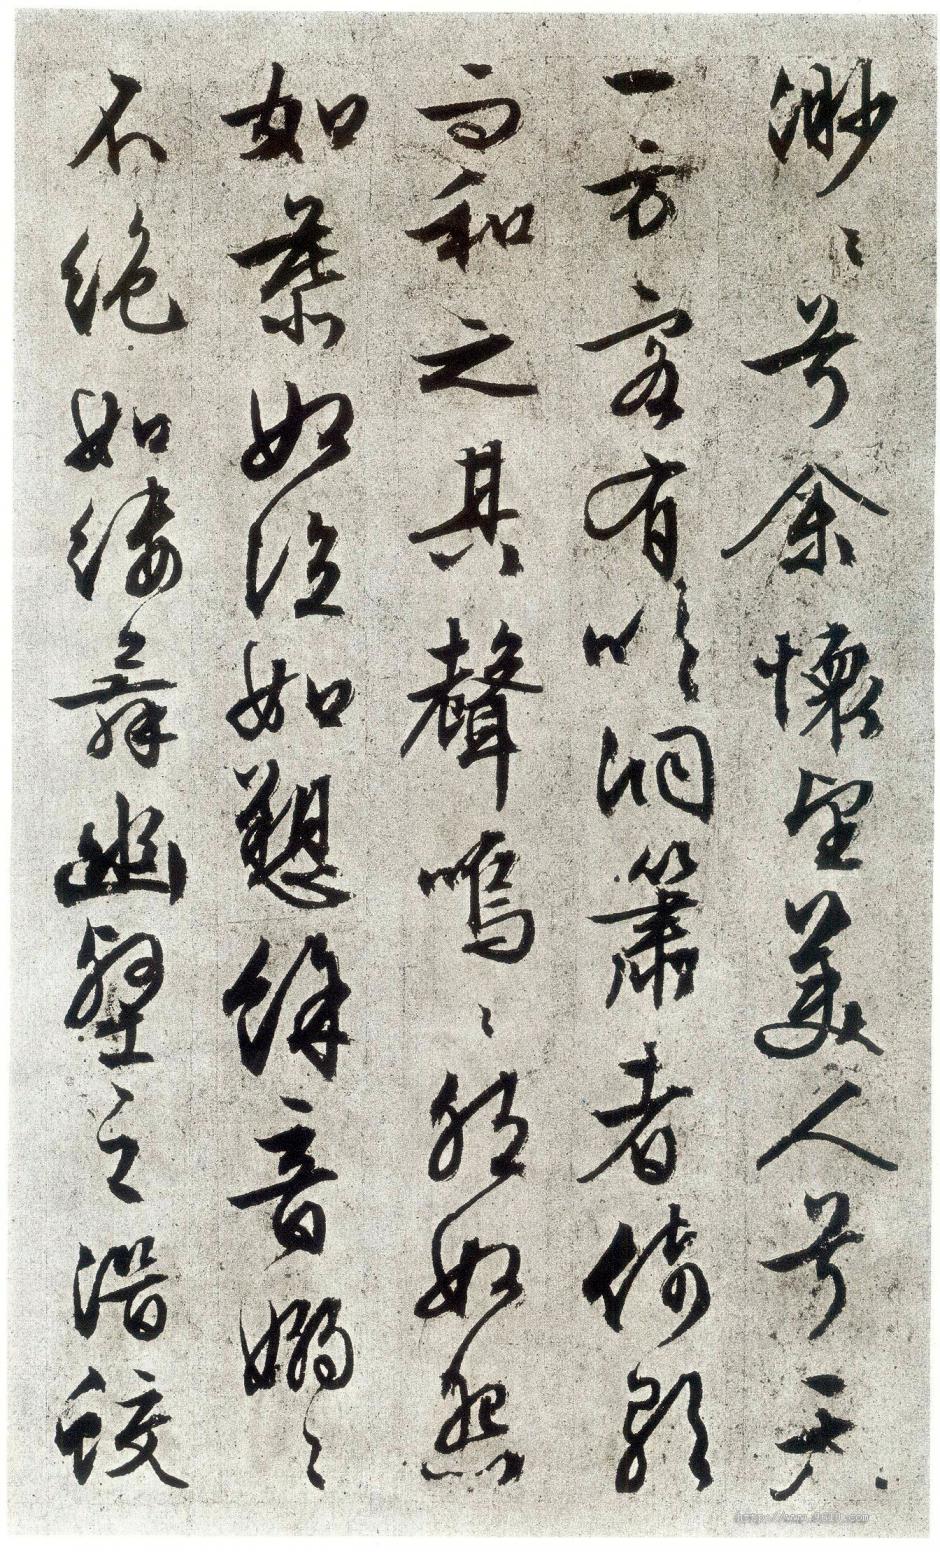 渺〻兮余懷望美人兮天
一方客有吹洞簫者倚歌
而和之其聲嗚〻然如怨
如慕如泣如愬餘音嫋〻
不絕如縷舞幽壑之潛蛟
http://www.9610.com